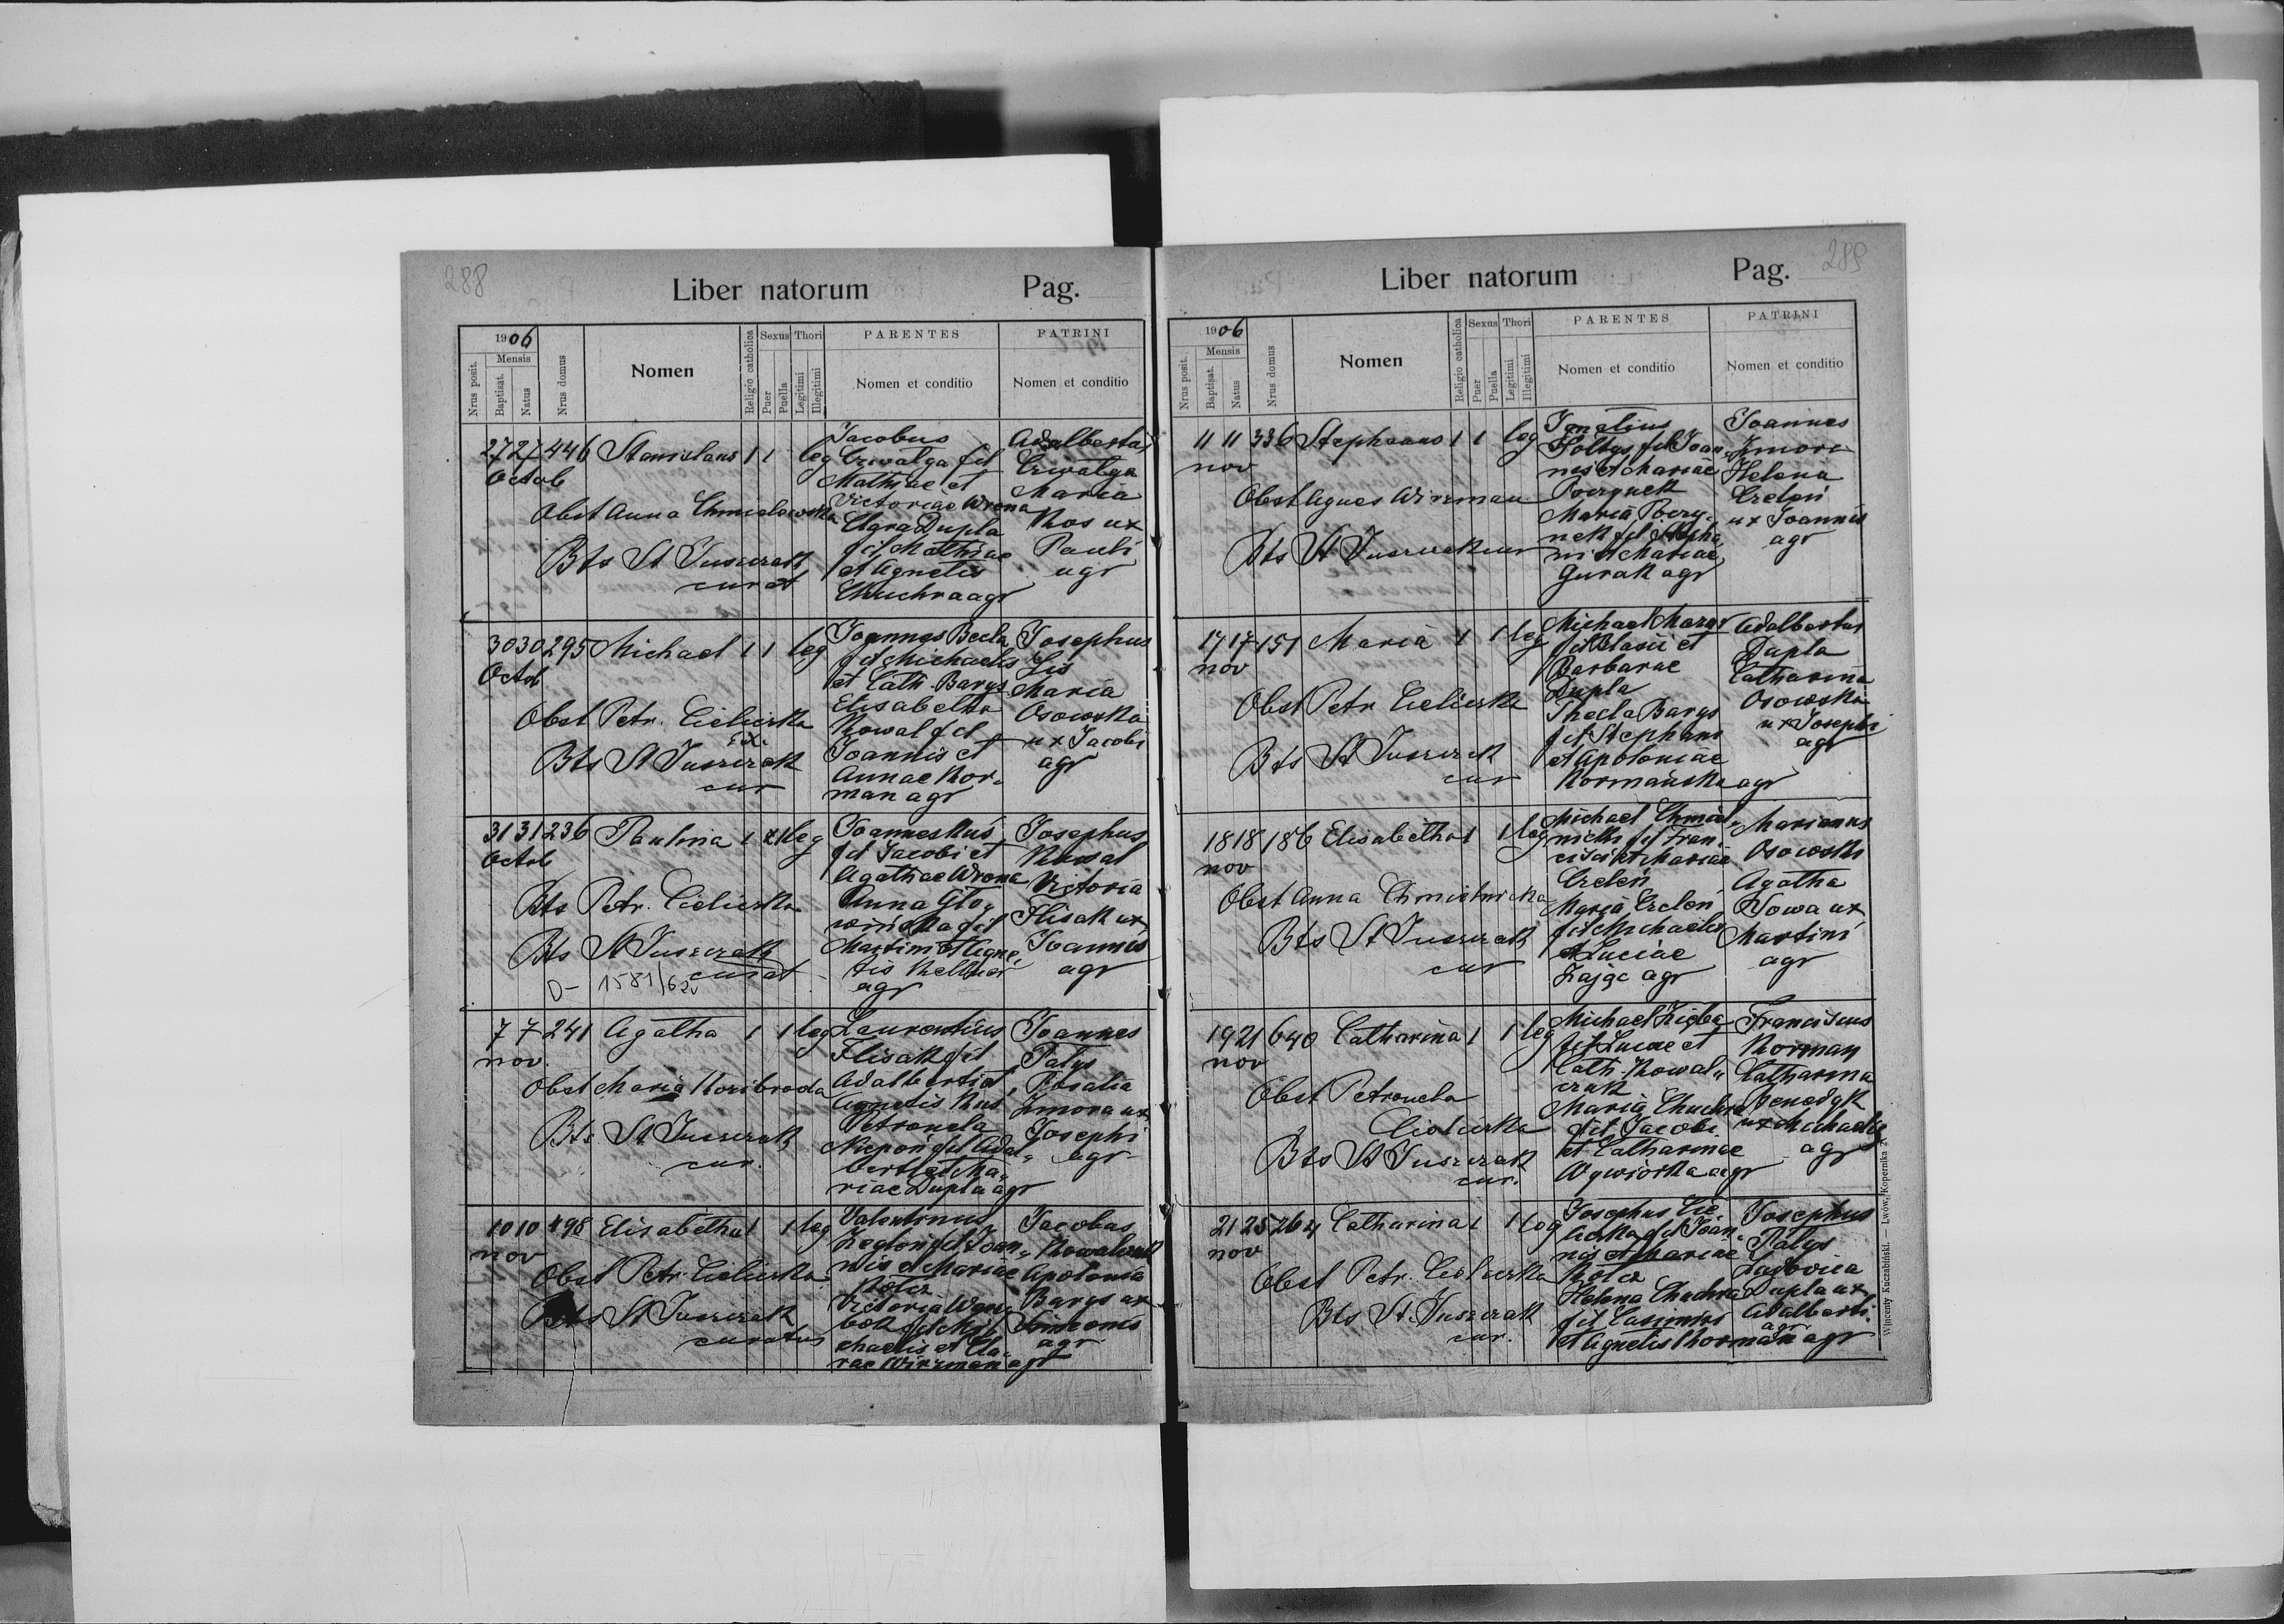 288
Liber natorum Pag.
1906
Nrus posit.
Mensis
Baptisat.
Natus
Nrus domus
Nomen
Religio catholica
Sexus
Puer
Puella
Thori
Legitimi
Illegitimi
PARENTES
Nomen et conditio
PATRINI
Nomen et conditio
27 27 446 Stanislaus 1 1 leg
Octob
Obst Anna Chmielowska
Bts St Juszczak
curat
Jacobus
fil
Mathiae et
Victoriae Wrona
Dupla
fil Mathiae
et Agnetis
Chuchra agr
Maria
Kos ux
Pauli
agr
30 30 295 Michael 1 1 leg
Octob
Obst Petr. Cielicska
Bts St Juszczak
cur
Joannes Becla
fil Michaelis
et Cath. Barys
Elisabetha
Kowal fil
Joannis et
Annae Kor-
man agr
Josephus
Lis
Maria
Osowska
ux Jacobi
agr
31 31 236 Paulina 1 1 leg
Octob
Bts Petr. Cielicska
Bts St Juszczak
curat
D- 1581/62
Joannes Kuś
fil Jacobi et
Agathae Wrona
Anna Gło-
fil
Martini et Agne-
tis Kellner
agr
Josephus
Kowal
Victoria
Flisak ux
Joannis
agr
7 7 241 Agatha 1 1 leg
nov
Obst Maria Koribroda
Bts St Juszczak
cur.
Laurentius
Flisak fil
Adalberti et
Agnetis Kus
Petronela
Niepoń fil Adal-
berti et Ma-
riae Dupla agr
Joannes
Patys
Rosalia
Zmora ux
Josephi
agr
10 10 498 Elisabetha 1 1 leg
nov
Obst Petr. Cielicska
Bts St Juszczak
curatus
Valentinus
Żegloń fil Joan-
nis et Mariae
Kołcz
Victoria
fil Mi-
chaelis et Cla-
rae Wirzman agr
Jacobus
Kowalczuk
Apolonia
Barys ux
Simeonis
agr
289
Liber natorum Pag.
1906
Nrus posit.
Mensis
Baptisat.
Natus
Nrus domus
Nomen
Religio catholica
Sexus
Puer
Puella
Thori
Legitimi
Illegitimi
PARENTES
Nomen et conditio
PATRINI
Nomen et conditio
11 11 336 Stephanus 1 1 leg
nov
Obst Agnes Wirzman
Bts St Juszczak cur
Ignatius
Sołtys fil Joan-
nis et Mariae
Maria
fil Stepha-
ni et Mariae
Gurak agr
Joannes
Zmora
Helena
Czeleń
ux Joannis
agr
17 17 151 Maria 1 1 leg
nov
Obst Petr Cielicska
Bts St Juszczak
cur
Michael Barys
fil Blasii et
Barbarae
Dupla
Thecla Barys
fil Stephani
et Apoloniae
Kormańska agr
Adalbertus
Dupla
Catharina
Osowska
ux Josephi
agr
18 18 186 Elisabetha 1 1 leg
nov
Obst Anna Chmielnicka
Bts St Juszczak
cur
Michael Chmiel-
nicki fil Fran-
cisci et Mariae
Czeleń
Maria Czeleń
fil Michaelis
et Luciae
Zając agr
Marianus
Osowski
Agatha
Sowa ux
Martini
agr
19 21 640 Catharina 1 1 leg
nov
Obst Petronela
Cielicska
Bts St Juszczak
cur.
Michael Zięba
fil Lucae et
Cath. Kowal-
czuk
Maria Chuchra
fil Jacobi
et Catharinae
Wywiórka agr
Franciscus
Korman
Catharina
Benedyk
ux Michaelis
agr
21 25 264 Catharina 1 1 leg
nov
Obst Petr. Cielicska
Bts St. Juszczak
cur.
Josephus Cie-
licska fil Joan-
nis et Mariae
Kołcz
Helena Chuchra
fil Casimiri
et Agnetis Korman agr
Josephus
Patys
Ludovica
Dupla ux
Adalberti
agr
Wincenty Kuczabiński. — Lwów, Kopernika 2.